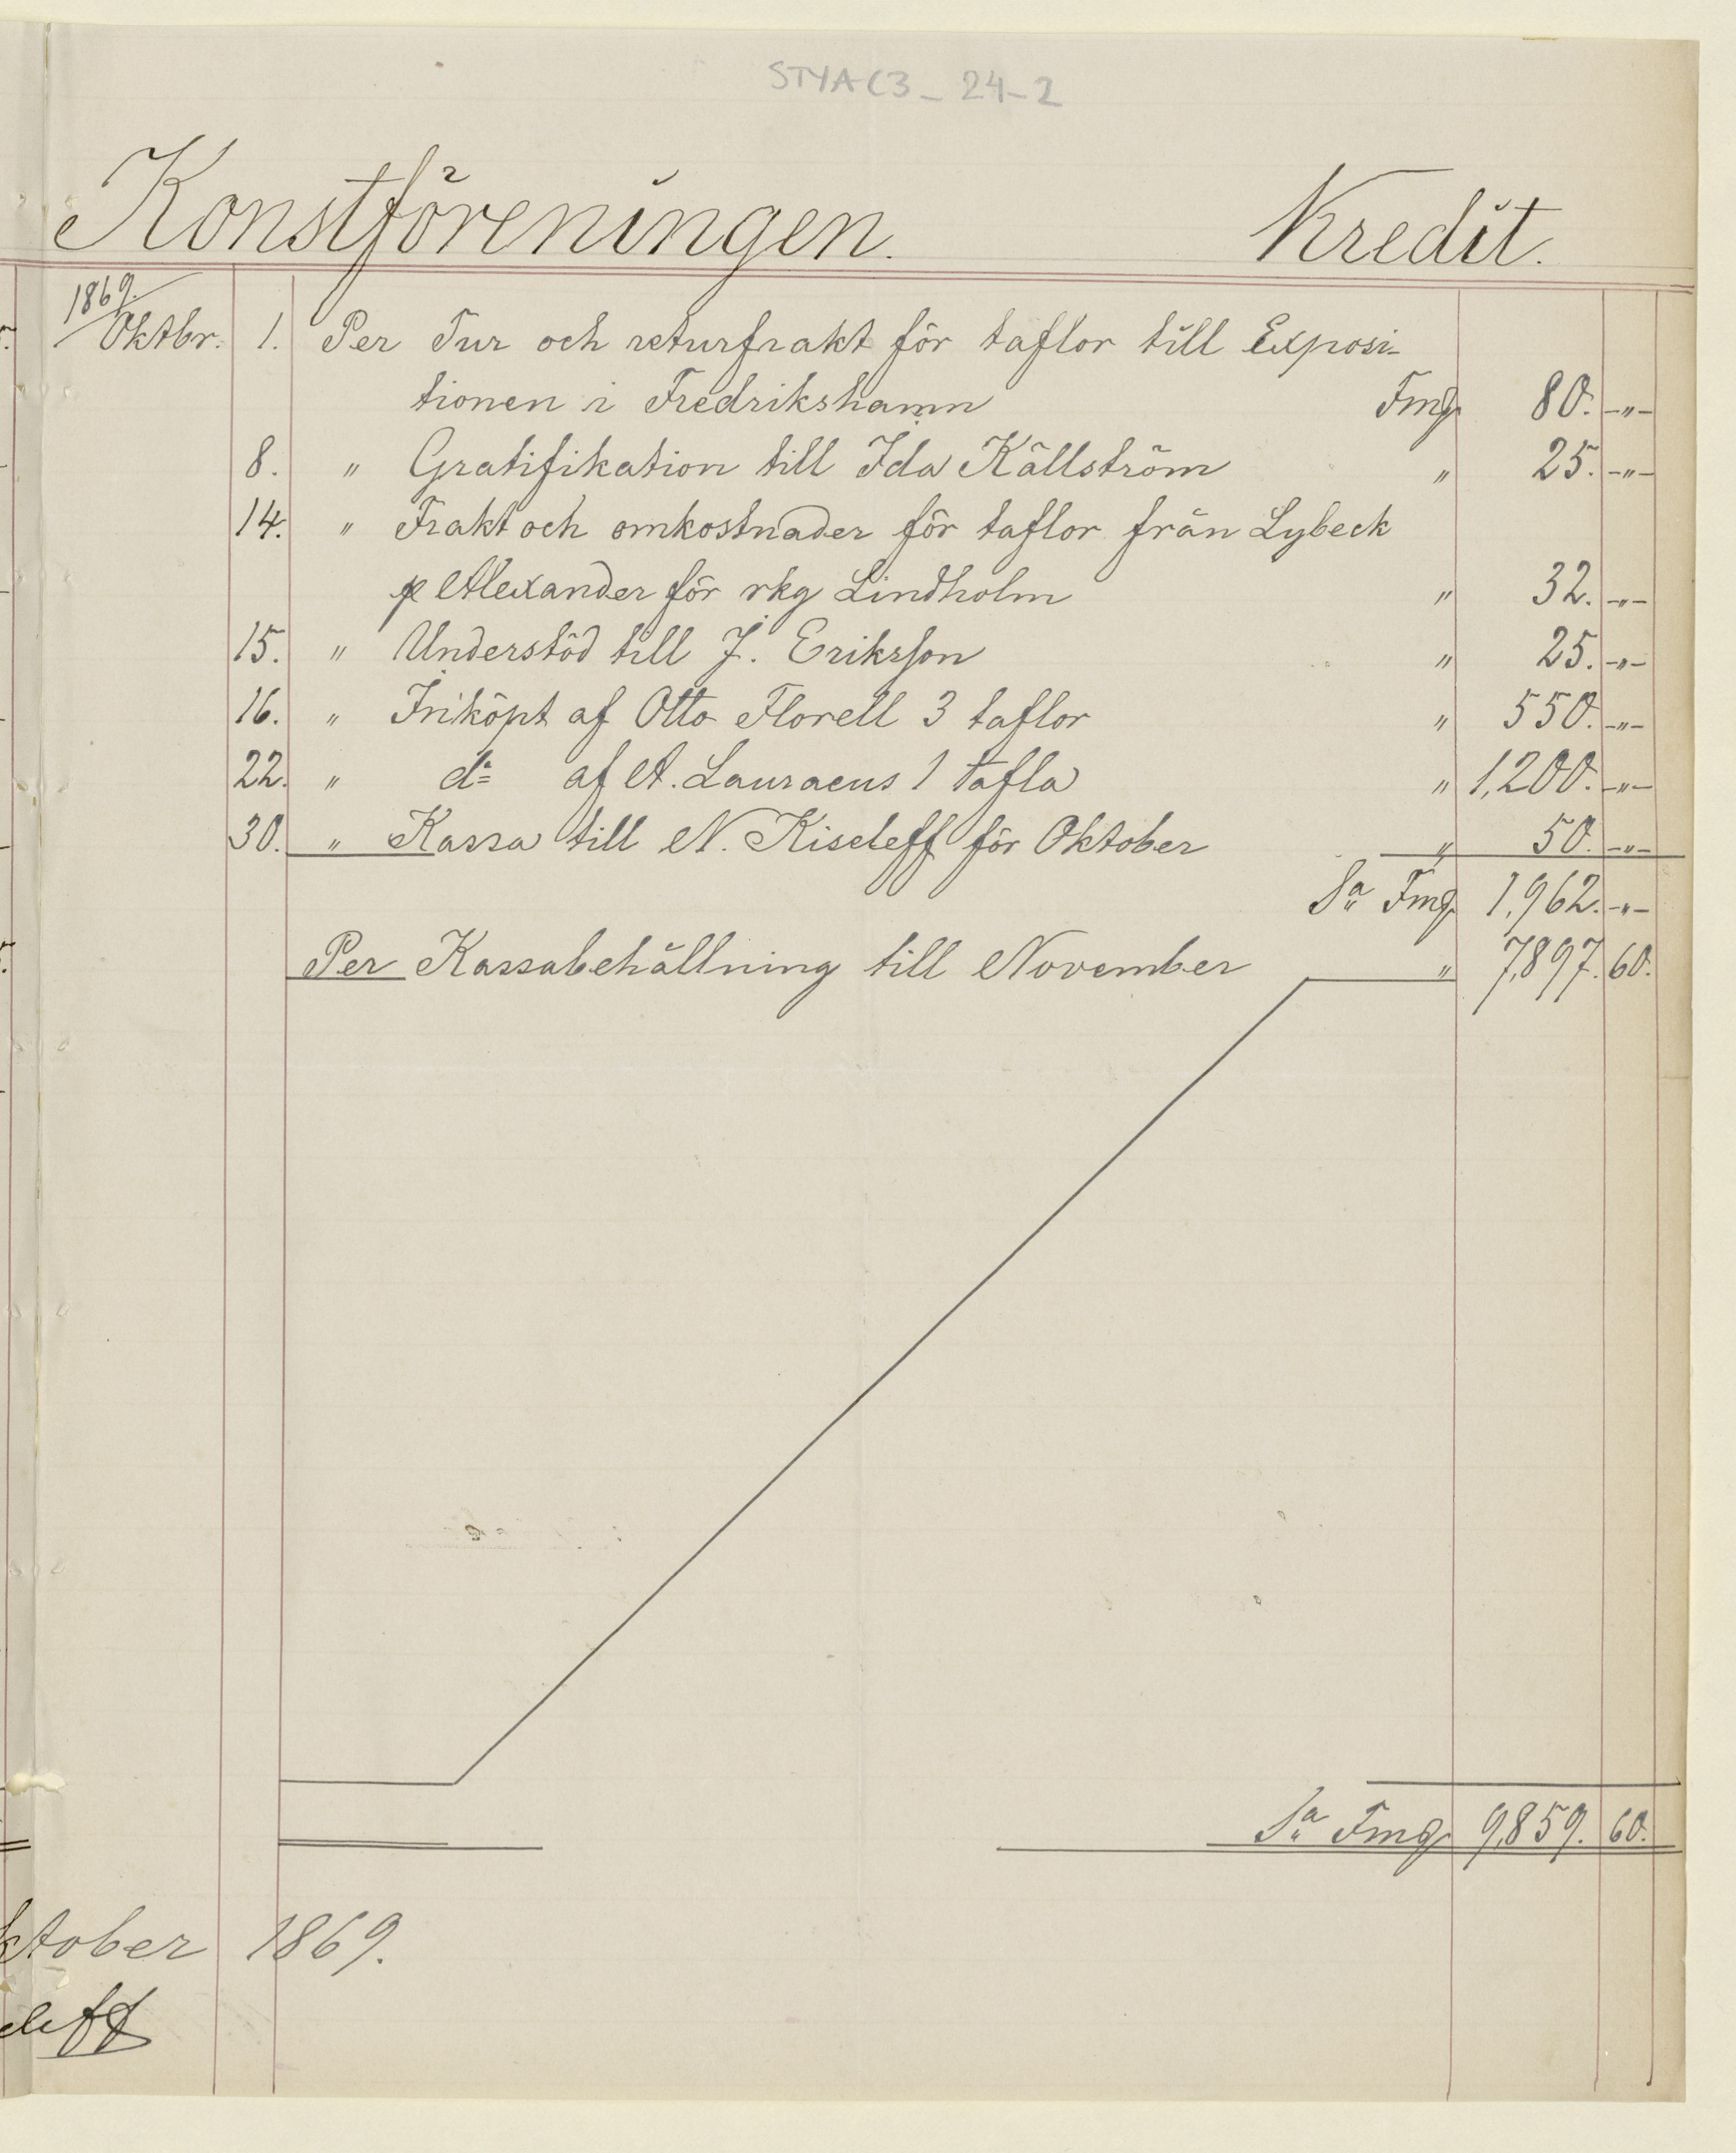 STYA C3_24-2
Konstföreningen. Kredit.
1869.
Oktbr. 1. Per Tur och returfrakt för taflor till Exposi-
tionen i Fredrikshamn Fmg 80. -"-
8. " Gratifikation till Ida Källström " 25. -"-
14. " Frakt och omkostnader för taflor från Lybeck
p Alexander för rkg Lindholm " 32. -"-
15. " Understöd till J. Eriksson " 25. -"-
16. " Inköpt af Otto Florell 3 taflor " 550. -"-
22. " do af A. Lauraeus 1 tafla " 1,200. -"-
30. " Kassa till N. Kiseleff för Oktober " 50. -"-
Sa Fmg 1,962. -"-
Per Kassabehållning till November " 7,897. 60.
Sa Fmg 9,859. 60.
ktober 1869.
eleff